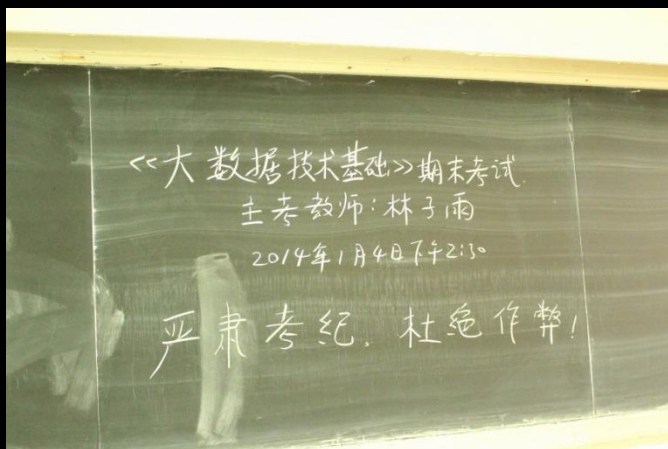 <<大数据技术基础>>期末考试.
主考教师:林子雨
2014年1月4日下午2:30
严肃考纪,杜绝作弊!